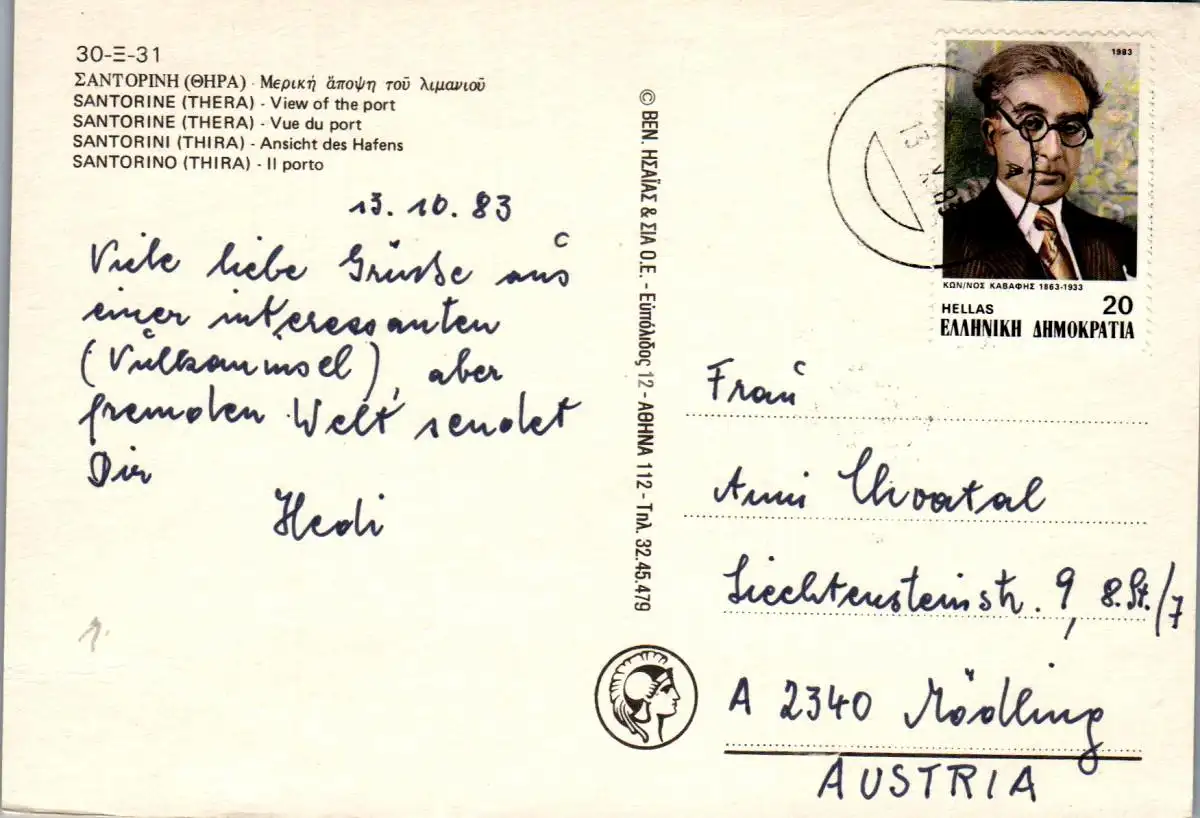 30-Ξ-31
ΣΑΝΤΟΡΙΝΗ (ΘΗΡΑ) - Μερική ἄποψη τοῦ λιμανιοῦ
SANTORINE (THERA) - View of the port
SANTORINE (THERA) - Vue du port
SANTORINI (THIRA) - Ansicht des Hafens
SANTORINO (THIRA) - Il porto
13. 10. 83
Viele liebe Grüsse aus
einer interessanten
(Vulkaninsel), aber
fremden Welt sendet
Dir
Hedi
1.
© ΒΕΝ. ΗΣΑΪΑΣ & ΣΙΑ Ο.Ε. - Εὐπόλιδος 12 - ΑΘΗΝΑ 112 - Τηλ. 32.45.479
1983
13 83
A
ΚΩΝ/ΝΟΣ ΚΑΒΑΦΗΣ 1863-1933
HELLAS 20
ΕΛΛΗΝΙΚΗ ΔΗΜΟΚΡΑΤΙΑ
Frau
Anni Chvatal
Liechtensteinstr. 9, 8.St./7
A 2340 Mödling
AUSTRIA